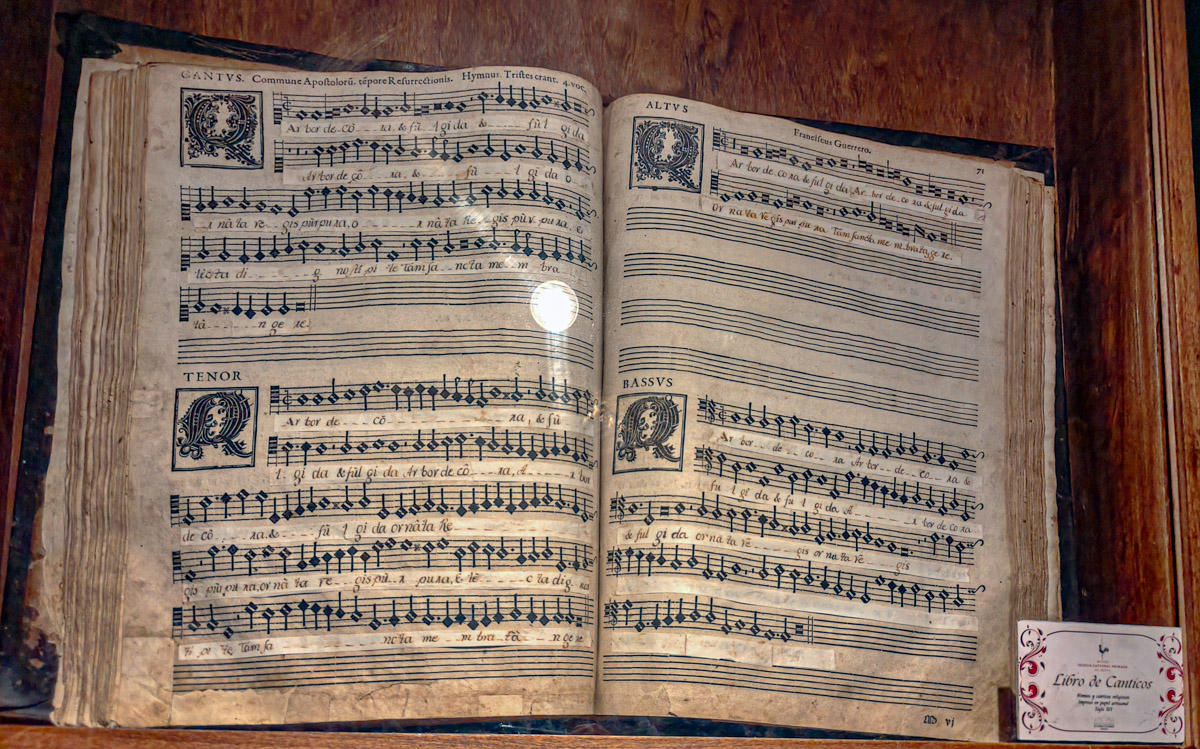 CANTVS. Commune Apostolorū. tēpore Resurrectionis. Hymnus. Tristes erant. 4. voc.
Ar bor de cō ra, & fū l gi da & fūl gi da
Ar bor de cō ra, & fū l gi da o
r nāta re gis pūrpu ra, o r nāta re gis pūr pu ra, e
lécta di g no sti pi te tām sa ncta me m bra
tā n ge re.
TENOR
Ar bor de cō ra, & fū
l gi da & fūl gi da Ar bor de cō ra, A r bor
de cō ra, & fū l gi da or nāta re
gis pūrpu ra, or nā ta re gis pū r pu ra, é lé cta di g no
sti pi te tam sa ncta me m bra tā n ge re
ALTVS
Franciscus Guerrero.
71
Ar bor de co ra & ful gi da Ar bor de co ra & ful gi da
Or na ta re gis pur pu ra Tam sancta me m bra tange re.
BASSVS
Ar bor de co ra Ar bor de co ra &
fu l gi da & fu l gi da A r bor de co ra
& ful gi da or na ta re gis or na ta re gis
M vj
Libro de Canticos
Himnos y canticos religiosos
Impreso en papel artesanal
Siglo XVI